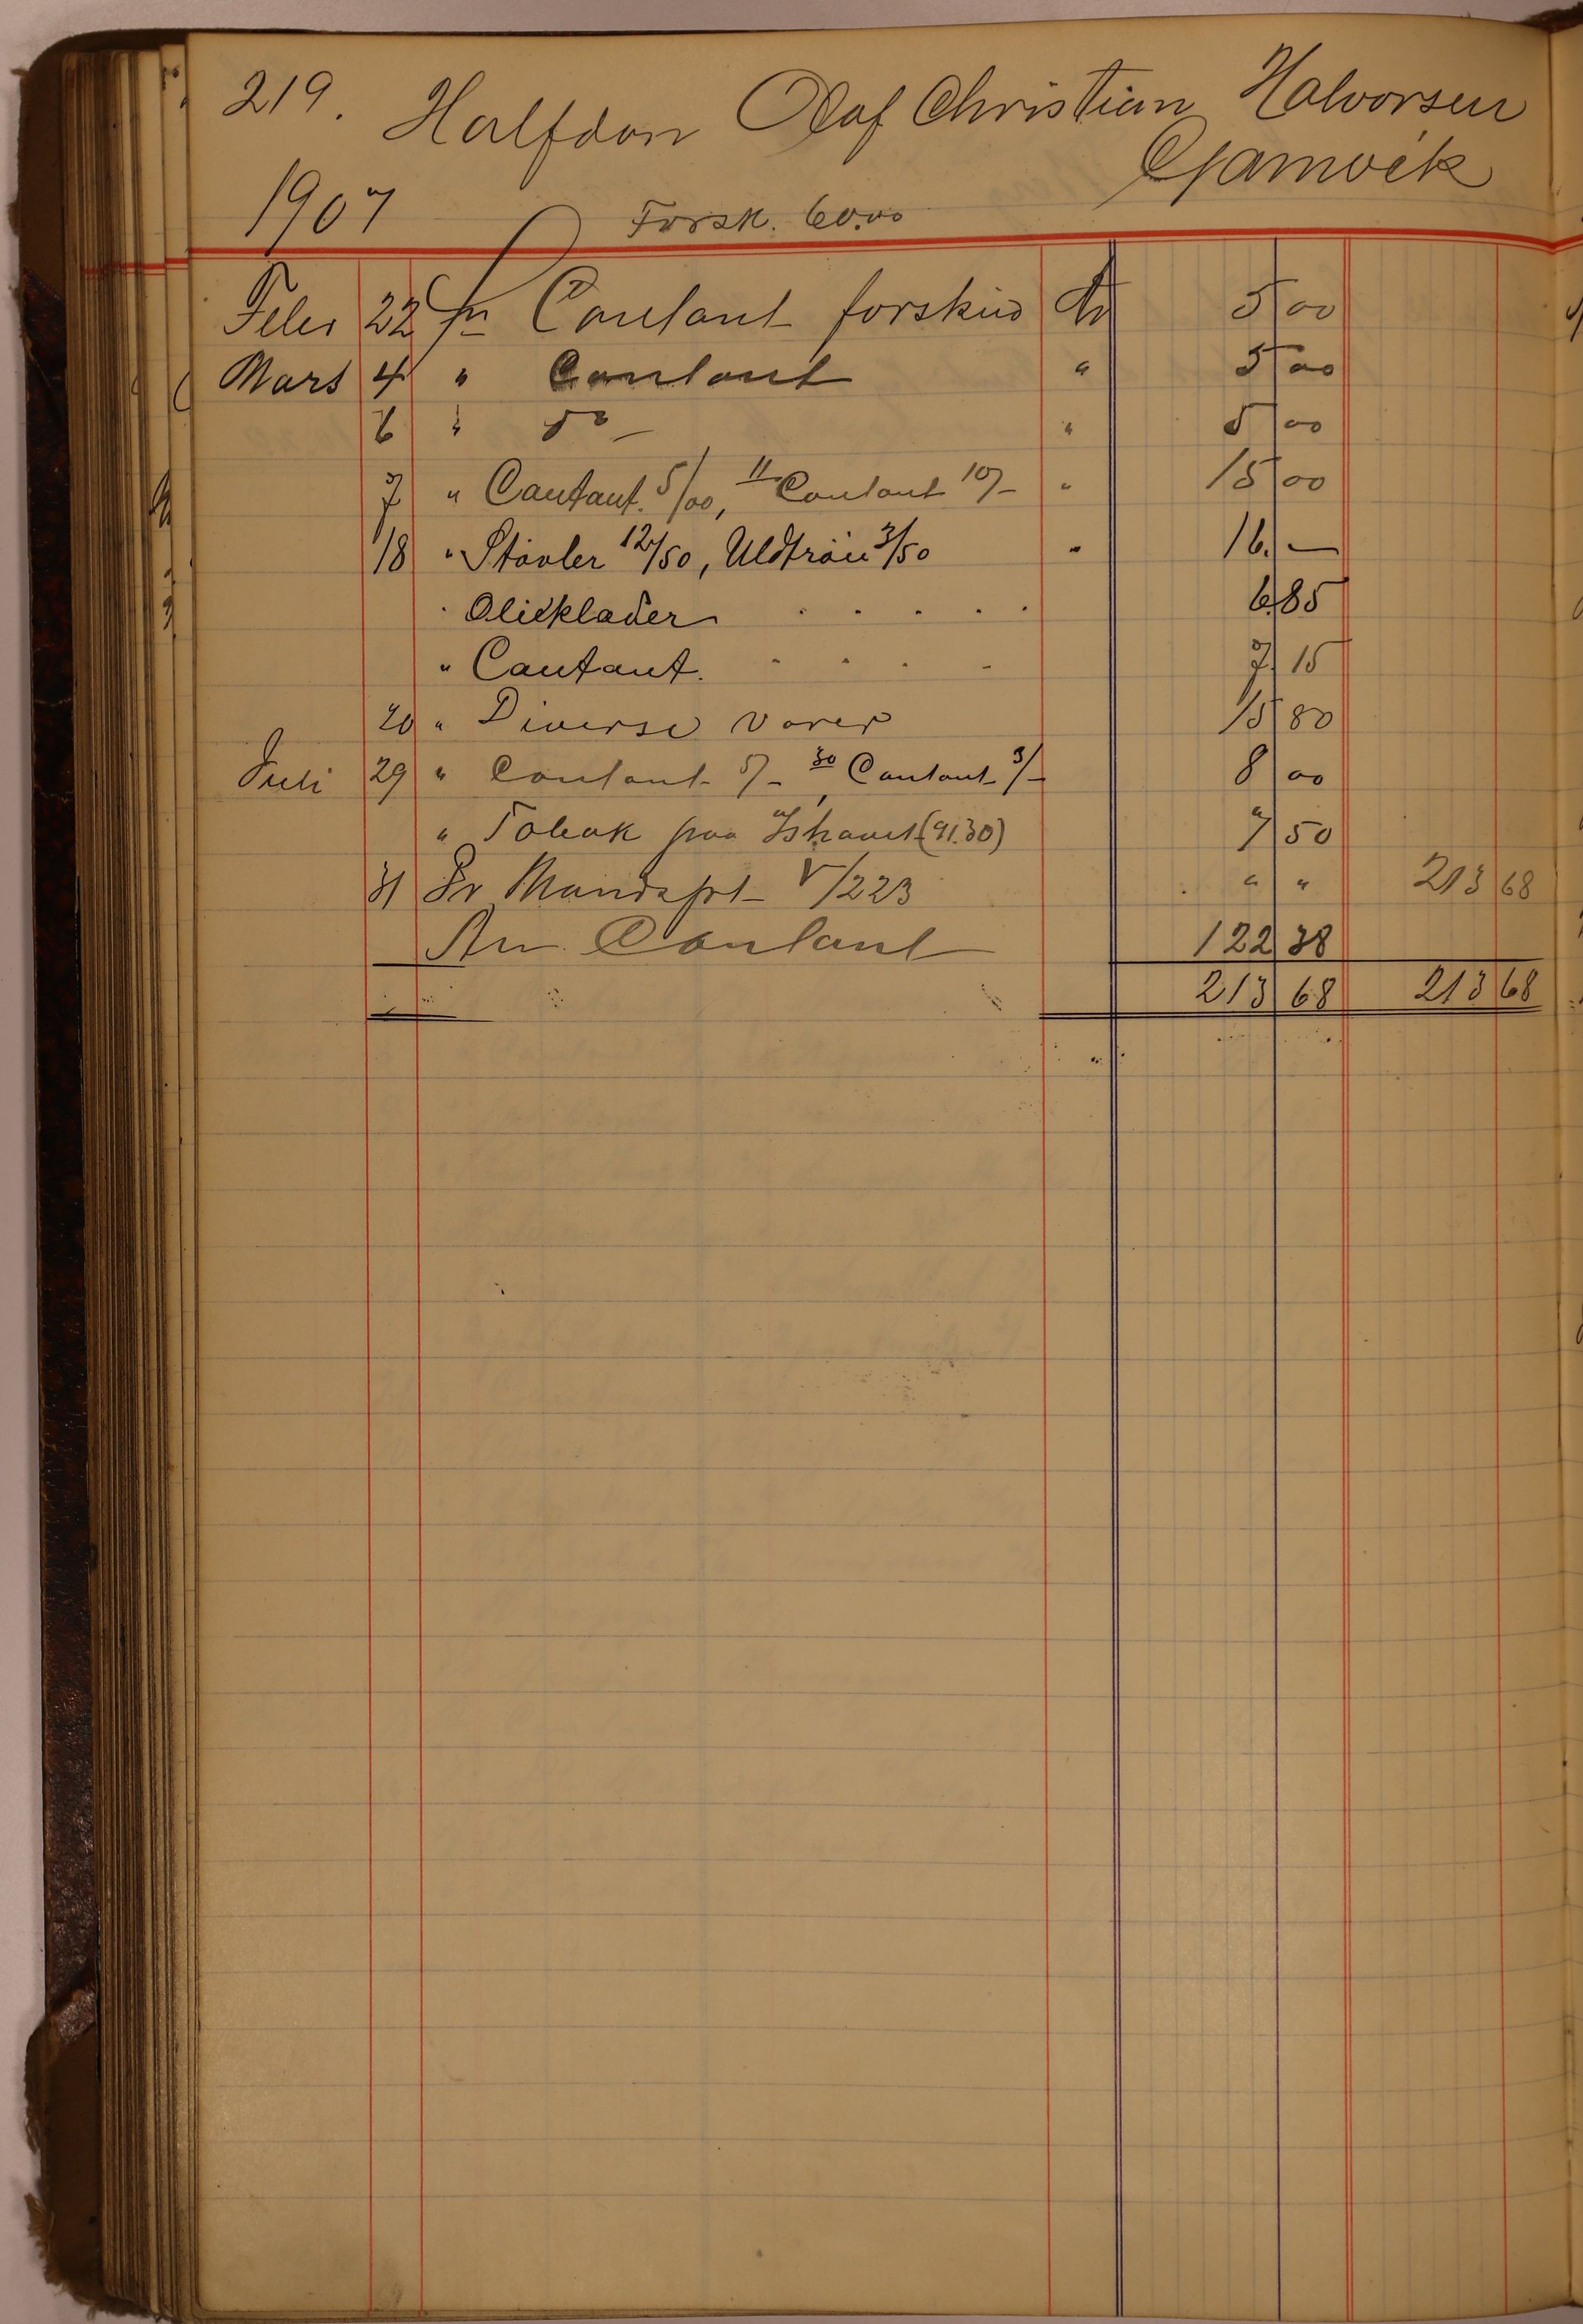 219. Halfdan Olaf Christian Halvorsen
Gjamvik
1907 Forsk. 60.00
Febr 22 pr Contant forskud Kr 5 00
Mars 4 " Contant " 5 00
6 " do — " 5 00
7 " Contant. 5/00, 11 Contant 10/- " 15 00
18 " Støvler 12/50, Uldtrøie 3/50 " 16. —
" Olieklæder . . . . . 6 85
" Contant. . . . . 7 15
20 " Diverse varer 15 80
Juli 29 " Contant 5/- , 30 Contant 3/- 8 00
" Tobak paa Ishavet (91.30) 7 50
31 Pr Mandspt V/223 " " 213 68
An Contant 122 38
213 68 213 68